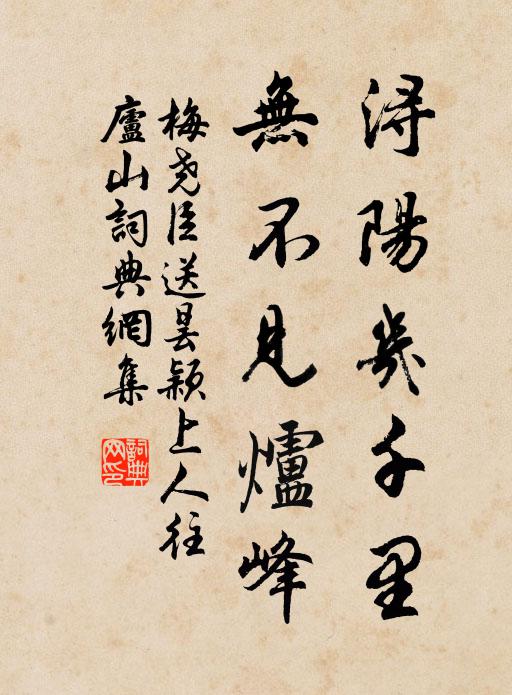 潯陽幾千里
無不見爐峰
梅尧臣送昙颖上人往
廬山詞典網集
詞典网印